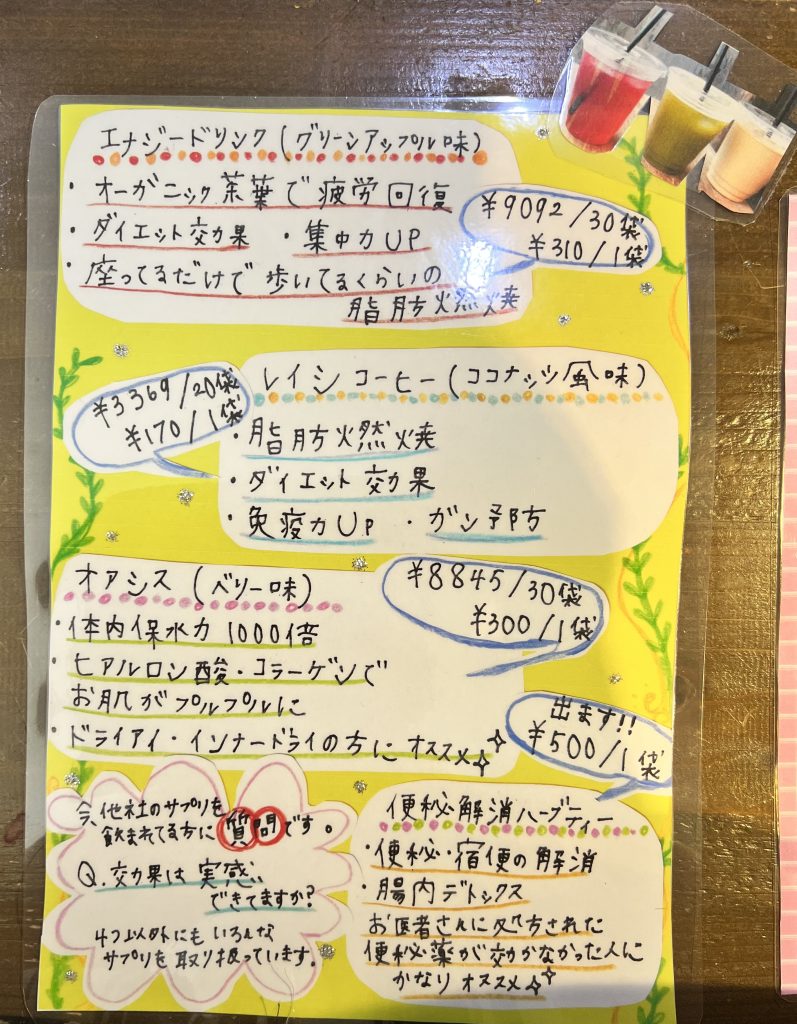 エナジードリンク(グリーンアップル味)
・オーガニック茶葉で疲労回復
・ダイエット効果 ・集中力UP
・座ってるだけで歩いてるくらいの
脂肪燃焼
¥9092/30袋
¥310/1袋
レイシコーヒー(ココナッツ風味)
・脂肪燃焼
・ダイエット効果
・免疫力UP ・ガン予防
¥3369/20袋
¥170/1袋
オアシス(ベリー味)
・体内保水力1000倍
・ヒアルロン酸・コラーゲンで
お肌がプルプルに
・ドライアイ・インナードライの方にオススメ
¥8845/30袋
¥300/1袋
出ます!!
¥500/1袋
今、他社のサプリを
飲まれてる方に質問です。
Q.効果は実感
できてますか?
4つ以外にもいろんな
サプリを取り扱っています。
便秘解消ハーブティー
・便秘・宿便の解消
・腸内デトックス
お医者さんに処方された
便秘薬が効かなかった人に
かなりオススメ